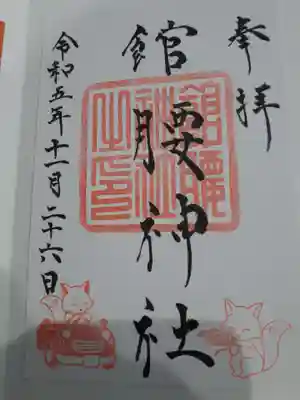 奉拝
館腰神社
令和五年十一月二十六日
館腰
神社
之印